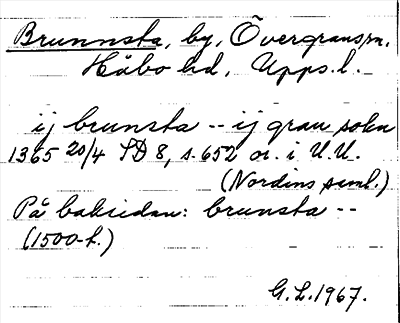 Brunnsta, by, Övergrans sn,
Håbo hd, Upps. l.
ij brunsta -- ij gran sokn
1365 20/4 SD 8, s. 652 or. i U.U.
(Nordins saml.)
På baksidan: brunsta --
(1500-t.)
G.L. 1967.